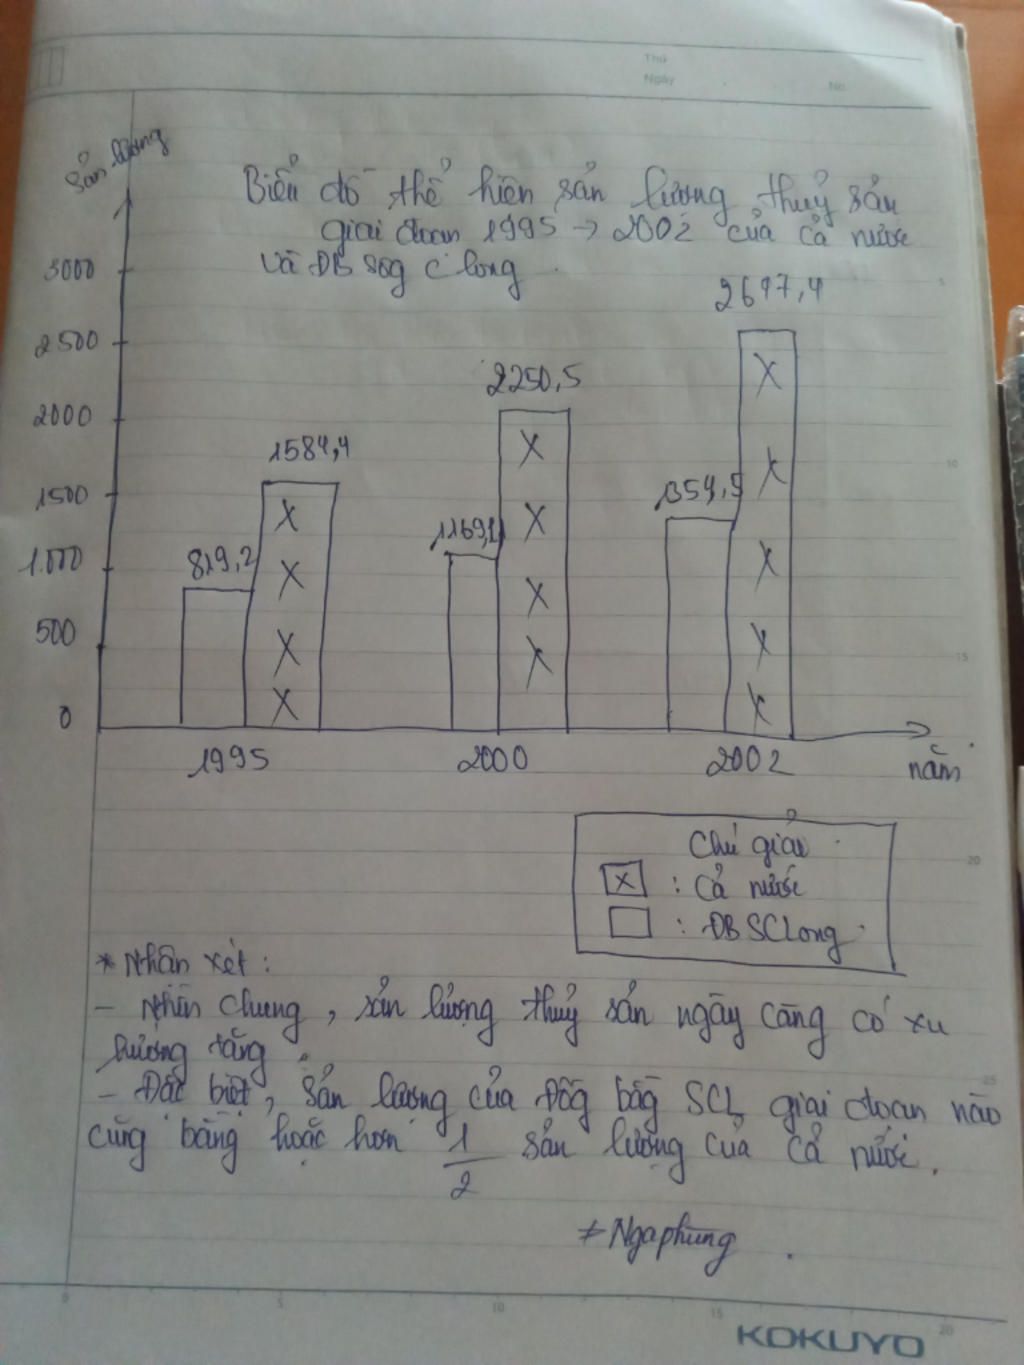 Thứ
Ngày
No.
Sản lượng
Biểu đồ thể hiện sản lượng thuỷ sản
giai đoạn 1995 → 2002 của cả nước
và ĐB sog C long
3000
2500
2000
1500
1.000
500
0
819,2
1584,4
1169,1
2250,5
1354,5
2647,4
1995
2000
2002
năm
Chú giải
X : Cả nước
: ĐB SCLong
* Nhận xét:
- Nhìn chung, sản lượng thuỷ sản ngày càng có xu
hướng tăng.
- Đặc biệt, sản lượng của Đồg bằg SCL giai đoạn nào
cũg bằng hoặc hơn 1/2 sản lượng của cả nước.
≠ Ngaphung
5
10
15
20
25
0
5
10
15
20
KOKUYO